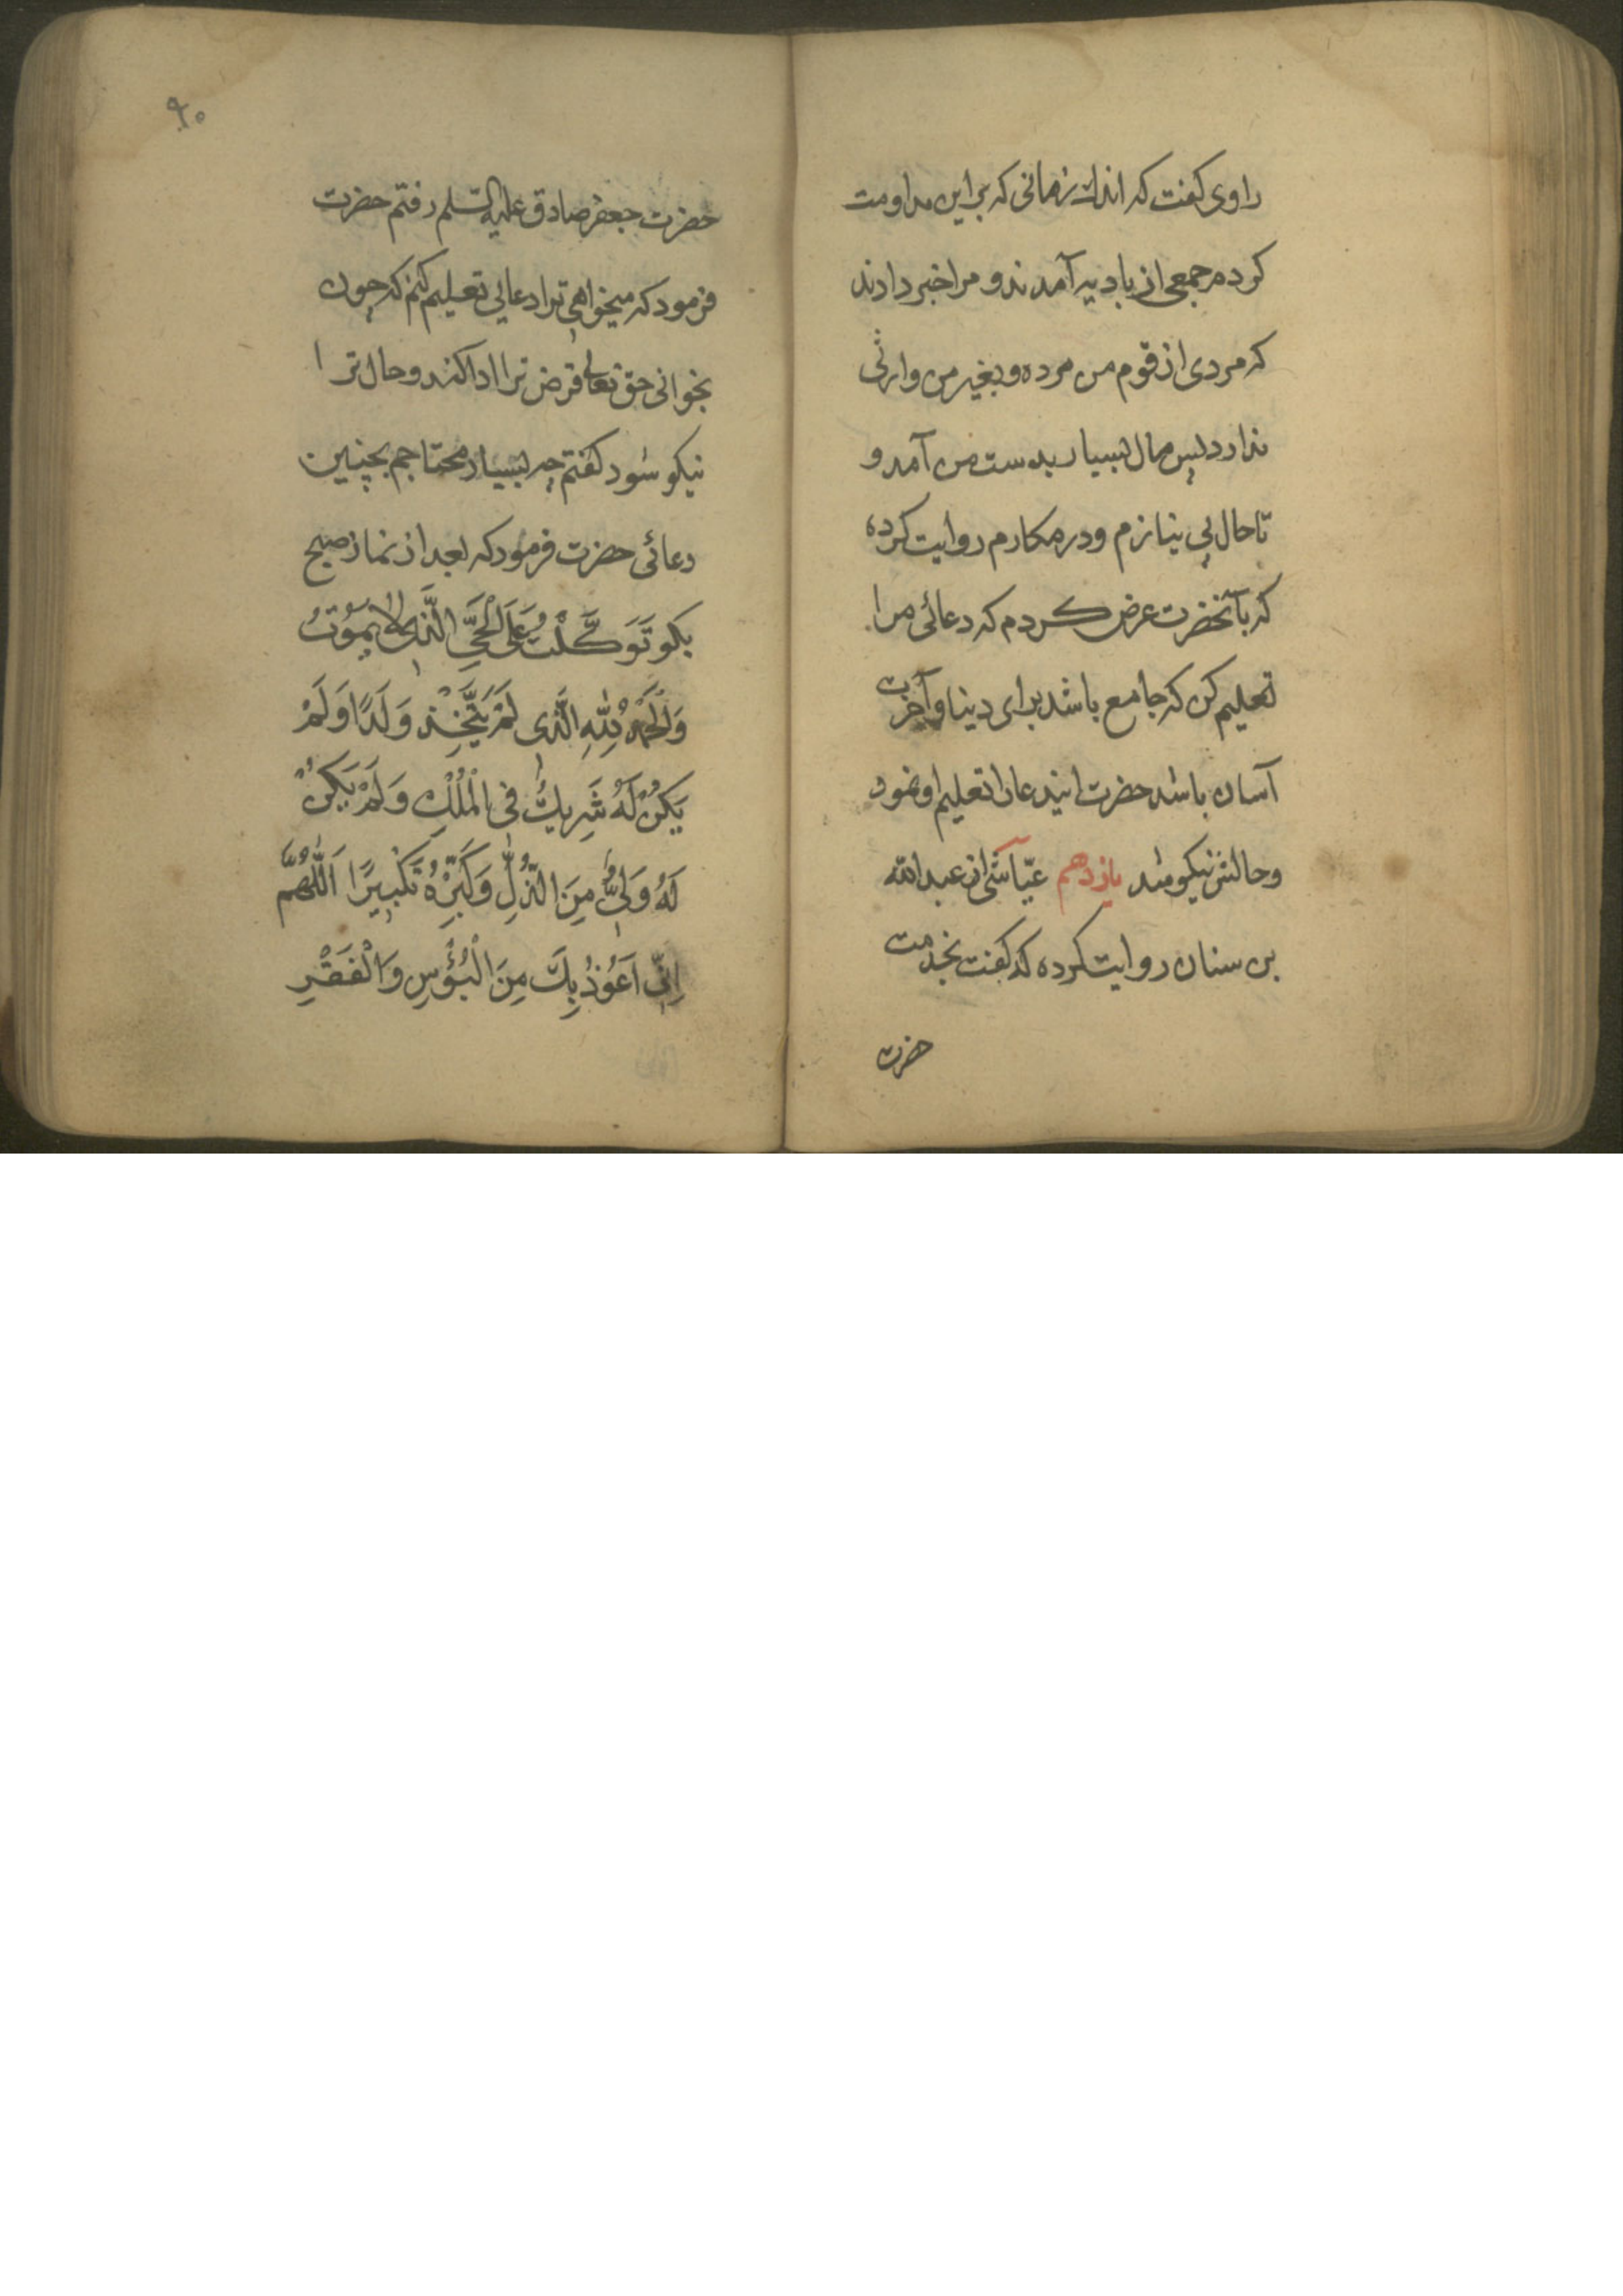 راوی کفت که اندک زمانی که بر این مداومت
کردم جمعی از بادیه آمدند و مرا خبر دادند
که مردی از قوم من مرده و بغیر من وارثی
ندارد پس مال بسیار بدست من آمد و
تا حال بی نیازم و در مکارم روایت کرده
که بآنحضرت عرض کردم که دعائی مرا
تعلیم کن که جامع باشد برای دنیا و آخرت
آسان باشد حضرت ایندعا را تعلیم او نمود
و حالش نیکو شد یازدهم عیّاشی از عبدالله
بن سنان روایت کرده که کفت بخدمت
حضرت
۹۰
حضرت جعفر صادق علیه السلم رفتم حضرت
فرمود که میخواهی ترا دعایی تعلیم کنم که چون
بخوانی حق تعالی قرض ترا ادا کند و حال ترا
نیکو شود کفتم چه بسیار محتاجم بچنین
دعائی حضرت فرمود که بعد از نماز صبح
بکو تَوَکَّلْتُ عَلَی الْحَیِّ الَّذِی لا یَمُوْتُ
وَالْحَمْدُ لِلّٰهِ الَّذِی لَمْ یَتَّخِذْ وَلَدًا وَلَمْ
یَکُنْ لَهُ شَرِیكٌ فی الْمُلْكِ وَلَمْ یَکُنْ
لَهُ وَلِیٌّ مِنَ الذُّلِّ وَکَبِّرْهُ تَکْبِیرًا اَللّٰهُمَّ
اِنّی اَعُوْذُ بِكَ مِنَ الْبُؤْسِ وَالْفَقْرِ